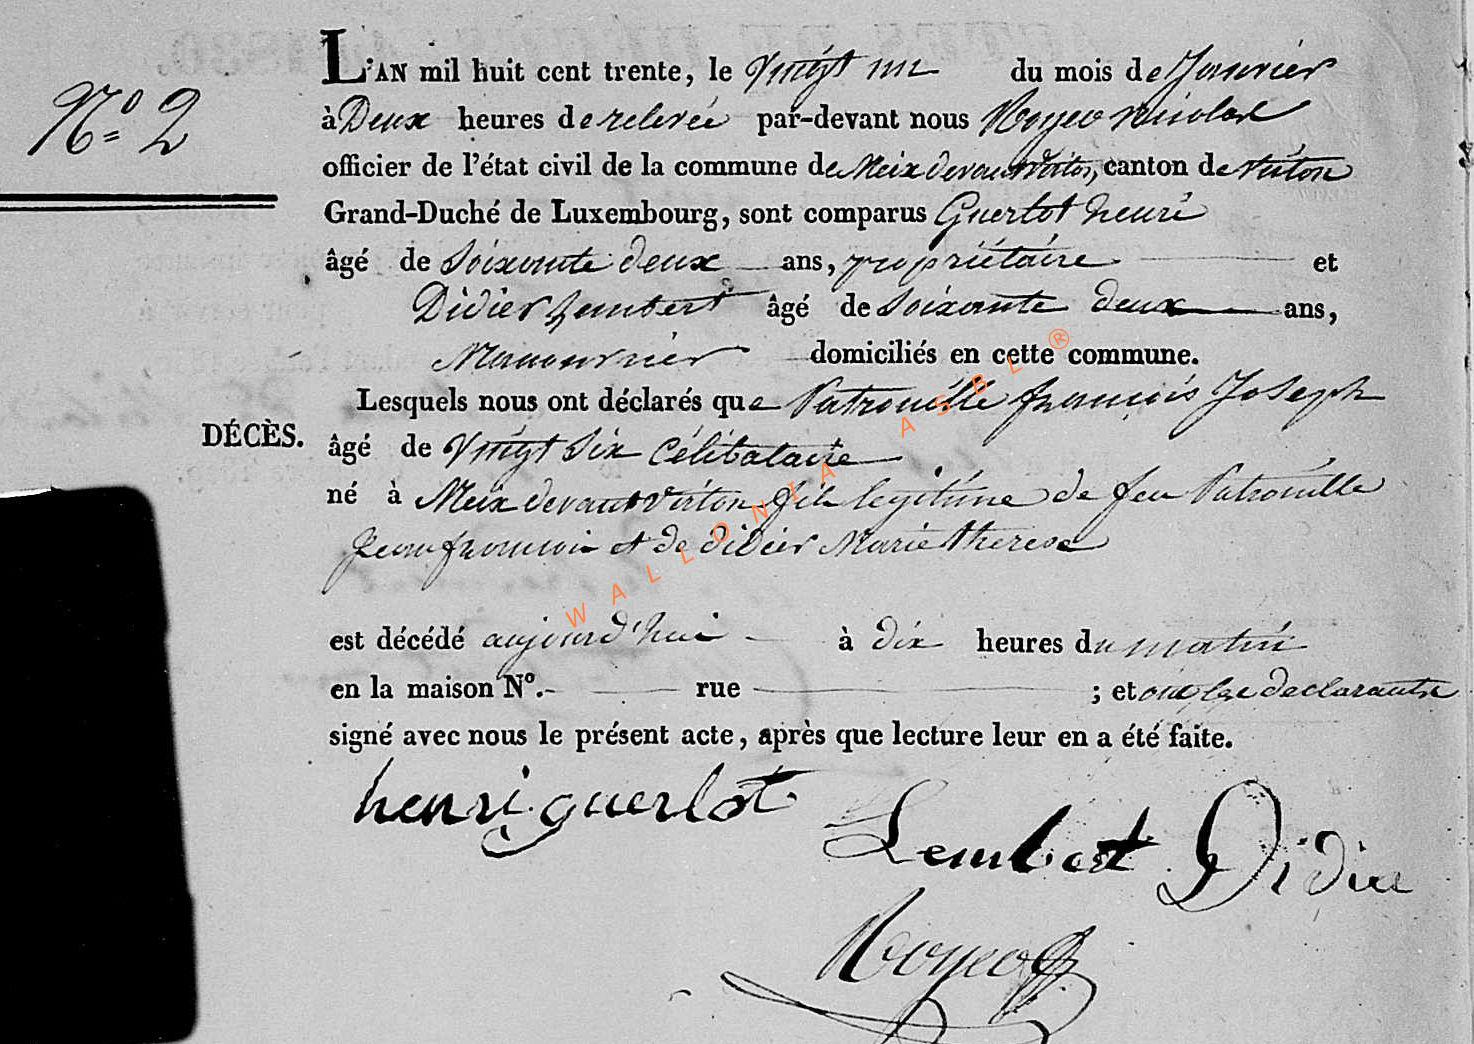 N.º 2
L'AN mil huit cent trente, le Vingt un du mois de Janvier
à Deux heures de relevée par-devant nous Noyeo Nicolas
officier de l'état civil de la commune de Meix devant Virton, canton de Virton
Grand-Duché de Luxembourg, sont comparus Guerlot henri
âgé de Soixante deux ans, propriétaire et
Didier Lambert âgé de Soixante deux ans,
Manouvrier domiciliés en cette commune.
Lesquels nous ont déclarés que Patrouille françois Joseph
DÉCÈS.
âgé de Vingt Six Célibataire
né à Meix devant Virton fils legitime de feu Patrouille
Jean françois et de Didier Marie therese
est décédé aujourd'hui à dix heures du matin
en la maison Nº. rue ; et ont les declarants
signé avec nous le présent acte, après que lecture leur en a été faite.
henri guerlot
Lembert Didier
WALLONIA ASBL ®